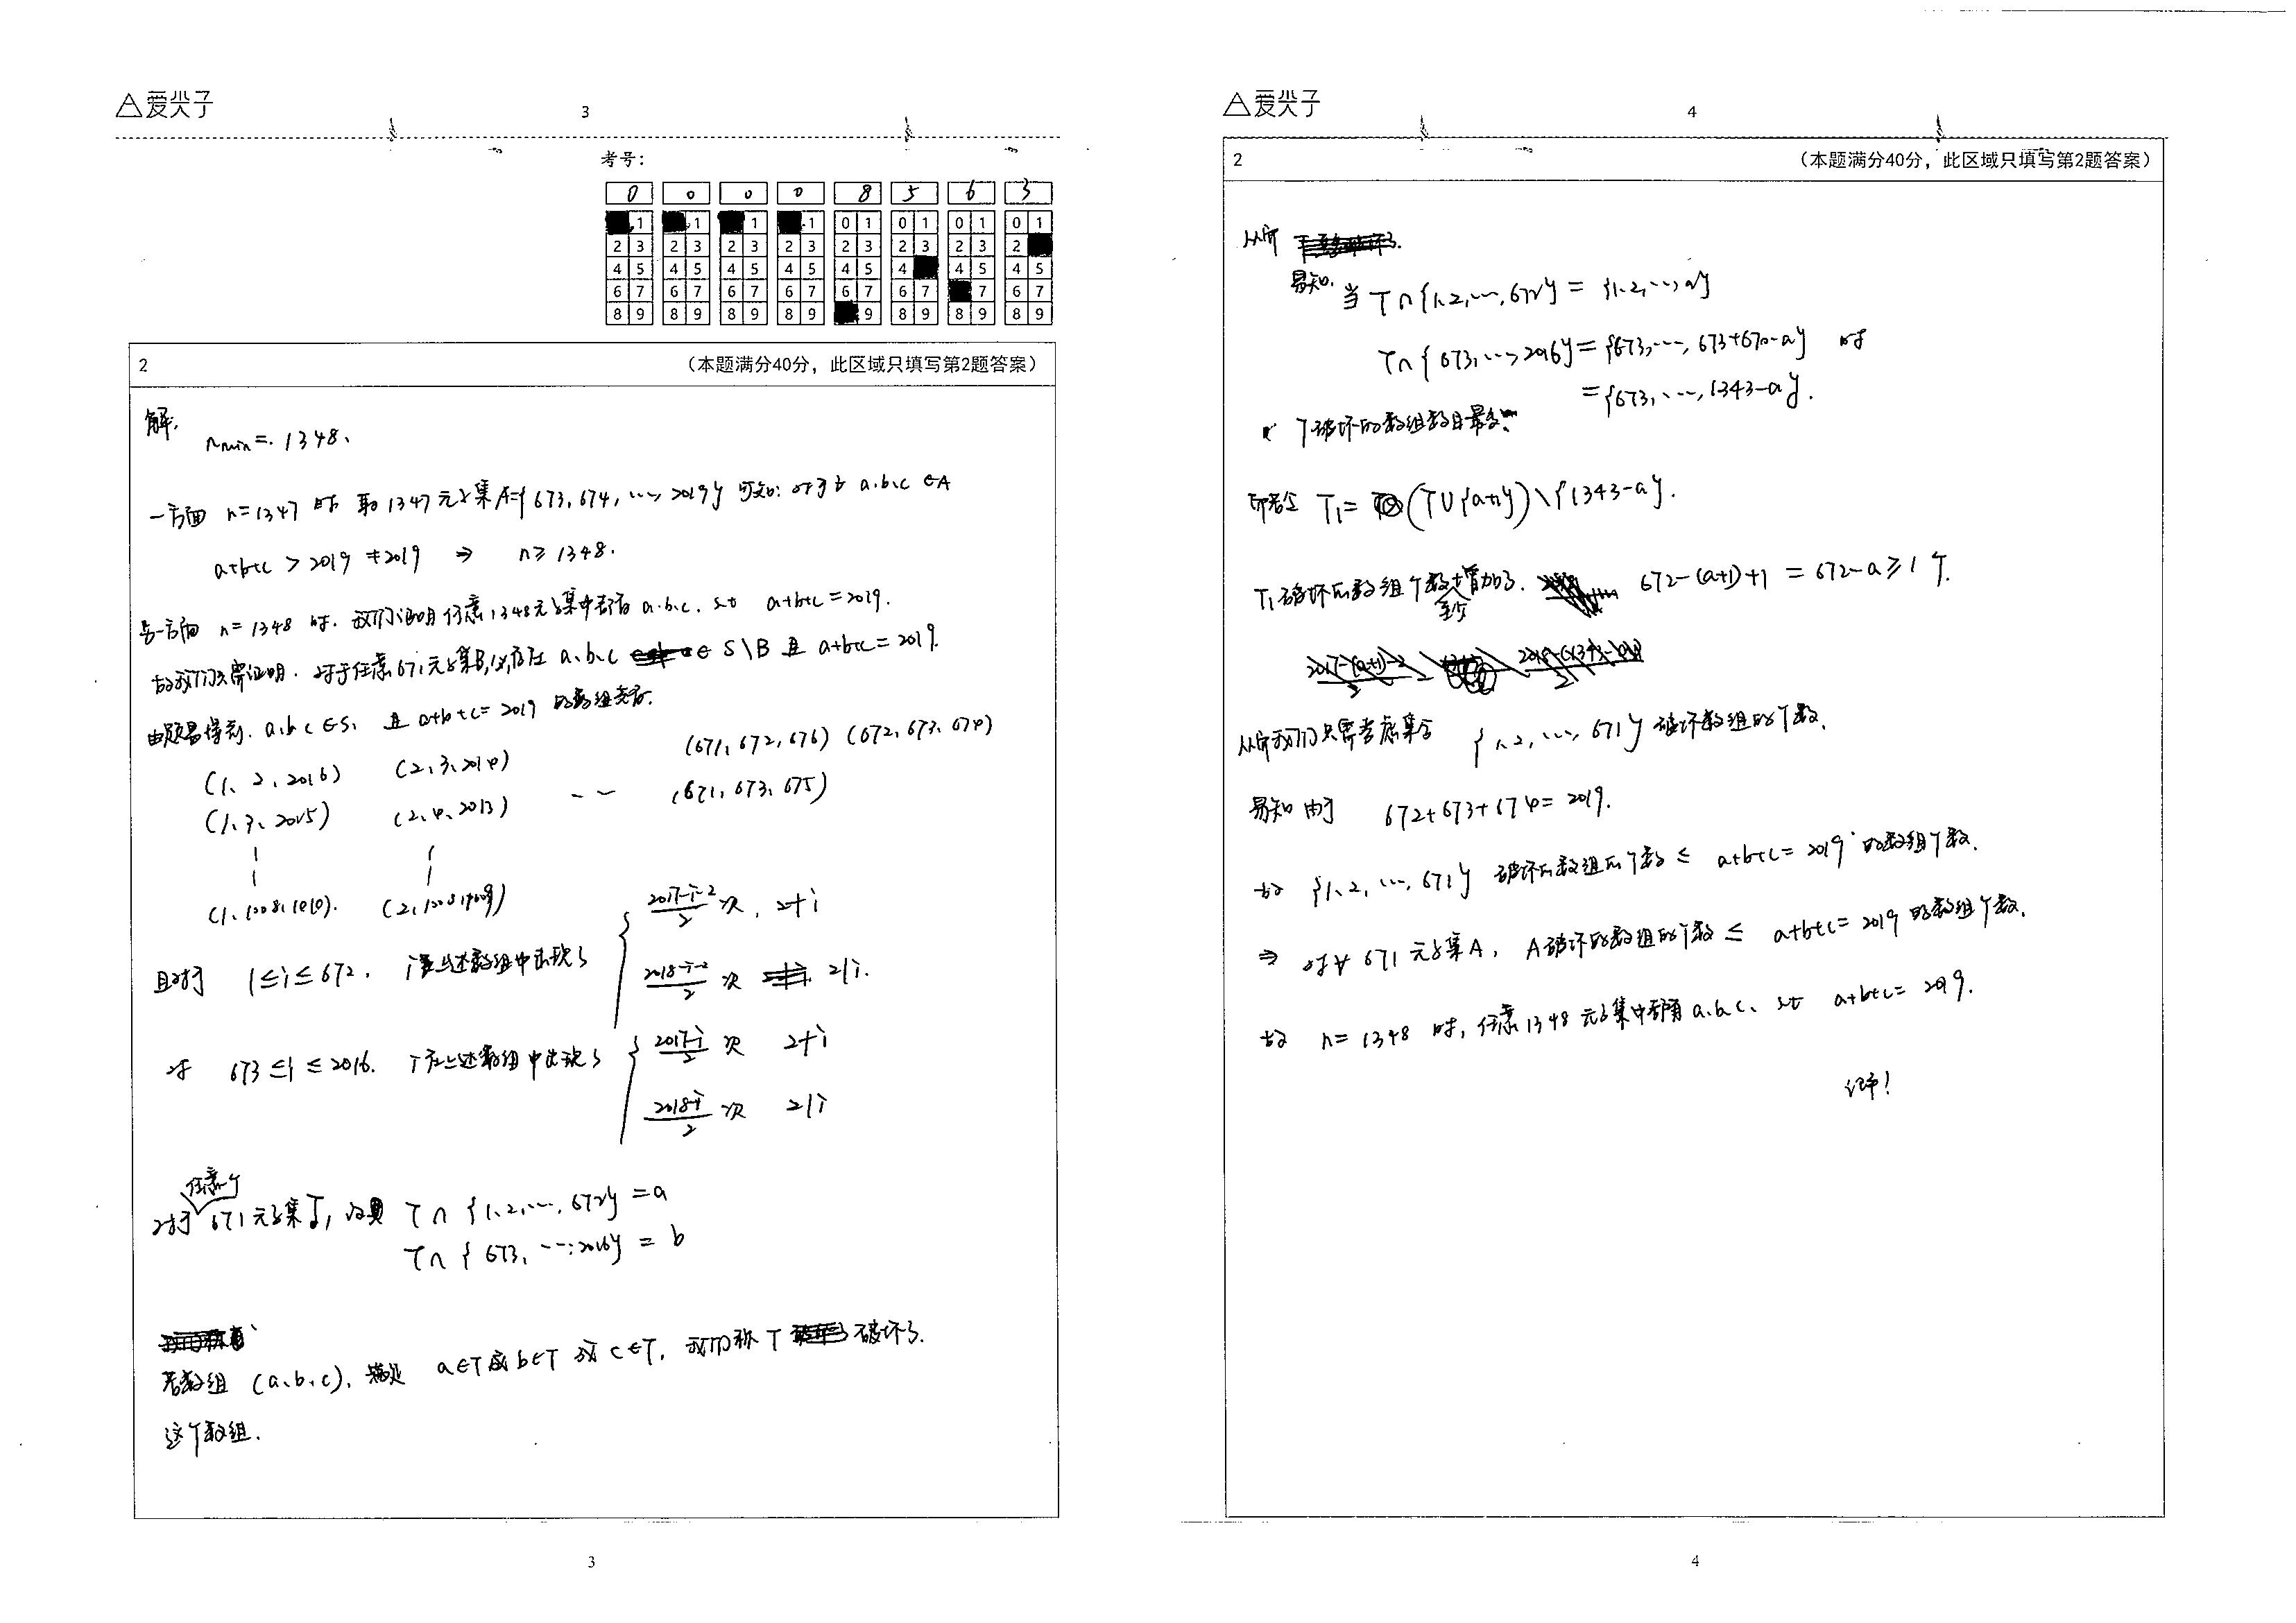 爱尖子
3
考号:
0 0 0 0 8 5 6 3
1 1 1 1 0 1 0 1 0 1 0 1
2 3 2 3 2 3 2 3 2 3 2 3 2 3 2
4 5 4 5 4 5 4 5 4 5 4 4 5 4 5
6 7 6 7 6 7 6 7 6 7 6 7 7 6 7
8 9 8 9 8 9 8 9 9 8 9 8 9 8 9
2 (本题满分40分,此区域只填写第2题答案)
解.
n_min = 1348.
一方面 n=1347 时 取 1347元子集 A={673, 674, ..., 2019} 可知: 对于∀ a.b.c ∈A
a+b+c > 2019 ≠2019 ⇒ n≥1348.
另一方面 n=1348 时. 我们证明任意1348元子集中都有 a.b.c. s.t a+b+c=2019.
故我们只需证明. 对于任意671元子集B,必存在 a.b.c ∈ S\B 且 a+b+c=2019.
由题易得到. a.b.c ∈S. 且 a+b+c=2019 的数组共有.
(1, 2, 2016) (2, 3, 2014) (671, 672, 676) (672, 673, 674)
(1, 3, 2015) (2, 4, 2013) -- (671, 673, 675)
(1, 1008, 1010). (2, 1008, 1009)
且对于 1≤i≤672. i在上述数组中出现了 { (2017-i-2)/2 次, 2∤i
(2018-i-2)/2 次 2|i.
对 673≤i≤2016. i在上述数组中出现了 { (2017-i)/2 次 2∤i
(2018-i)/2 次 2|i
任意个
对于671元子集T, 设 T∩{1,2,...,672}=a
T∩{673, ...,2016}=b
若数组 (a,b,c), 满足 a∈T或b∈T 或 c∈T, 我们称 T 破坏了.
这个数组.
3
爱尖子
4
2 (本题满分40分,此区域只填写第2题答案)
从而
易知. 当 T∩{1,2,...,672}={1,2,...,a}
T∩{673,...,2016}={673,...,673+670-a} 时
={673,...,1343-a}.
T破坏的数组数目最多.
所若令 T₁=(T∪{a+1})\{1343-a}.
T₁破坏的数组个数至少增加了. 672-(a+1)+1=672-a≥1个.
从而我们只需考虑集合 {1,2,...,671}破坏数组的个数.
易知 由于 672+673+674=2019.
故 {1,2,...,671} 破坏的数组的个数 ≤ a+b+c=2019 的数组个数.
⇒ 对∀ 671元子集A, A破坏的数组的个数 ≤ a+b+c=2019 的数组个数.
故 n=1348 时, 任意1348元子集中都有 a.b.c. s.t a+b+c=2019.
证毕!
4